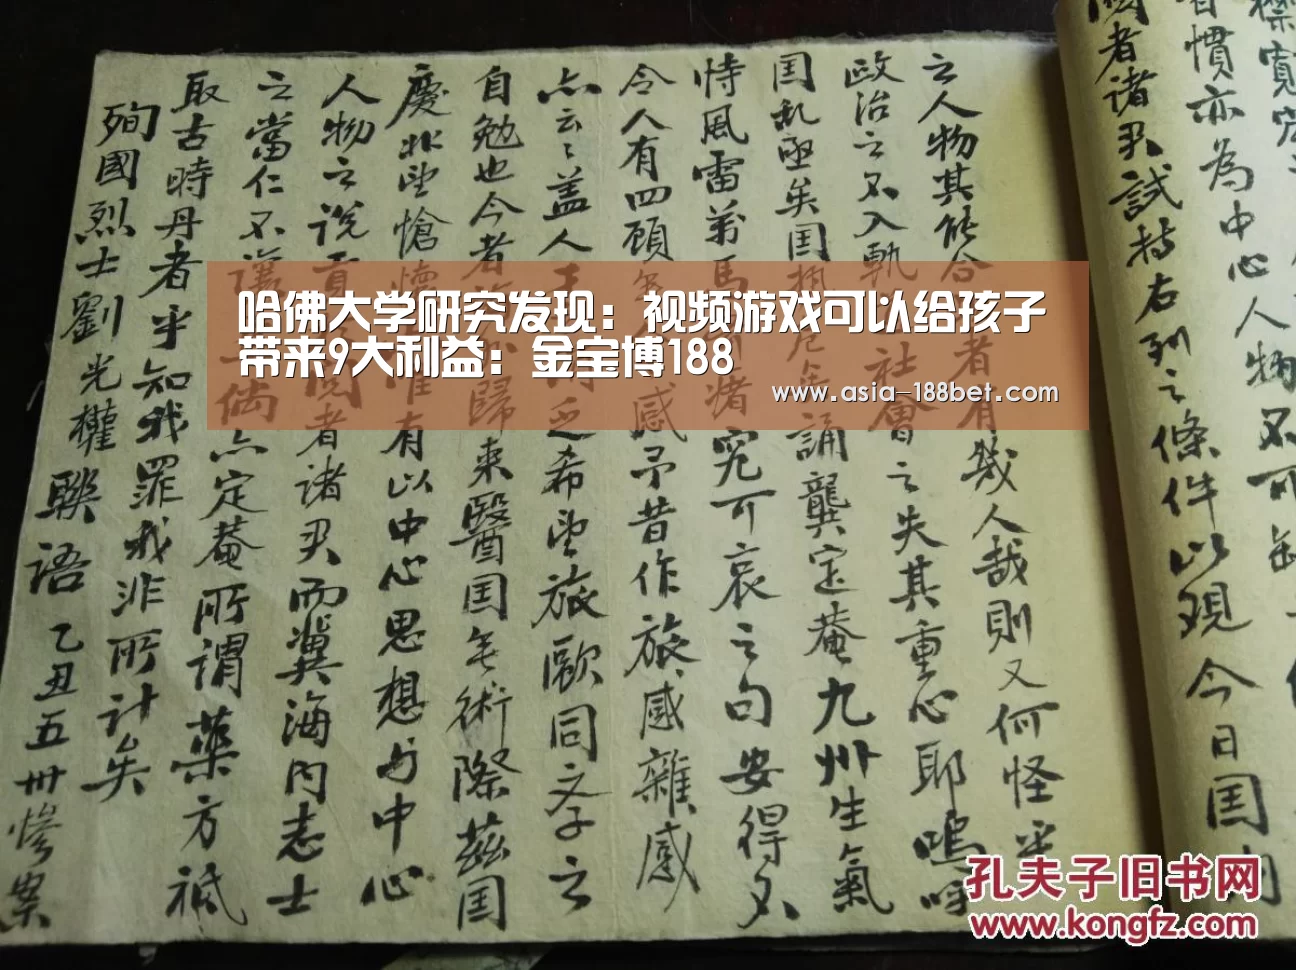 寬
慣亦為中心人物不可缺
者諸君試持右列之條件以覌今日国内
之人物其能合者有幾人哉則又何怪乎
政治之不入軌社會之失其重心耶嗚呼
国乱亟矣国危誦龔定菴九州生氣
恃風雷萬馬究可哀之句安得不
令人有四顧感予昔作旅感雜感
亦云云盖人乏希望旅歐同文子之
自勉也今者歸来醫国無術際茲国
慶北望愴懷惟有以中心思想与中心
人物之說貢閱者諸君而冀海内志士
之當仁不讓倘亦定菴所謂藥方祗
取古時丹者乎知我罪我非所計矣
殉國烈士劉光權聯語 乙丑五卅慘案
哈佛大学研究发现：视频游戏可以给孩子
带来9大利益：金宝博188
www.asia-188bet.com
孔夫子旧书网
www.kongfz.com